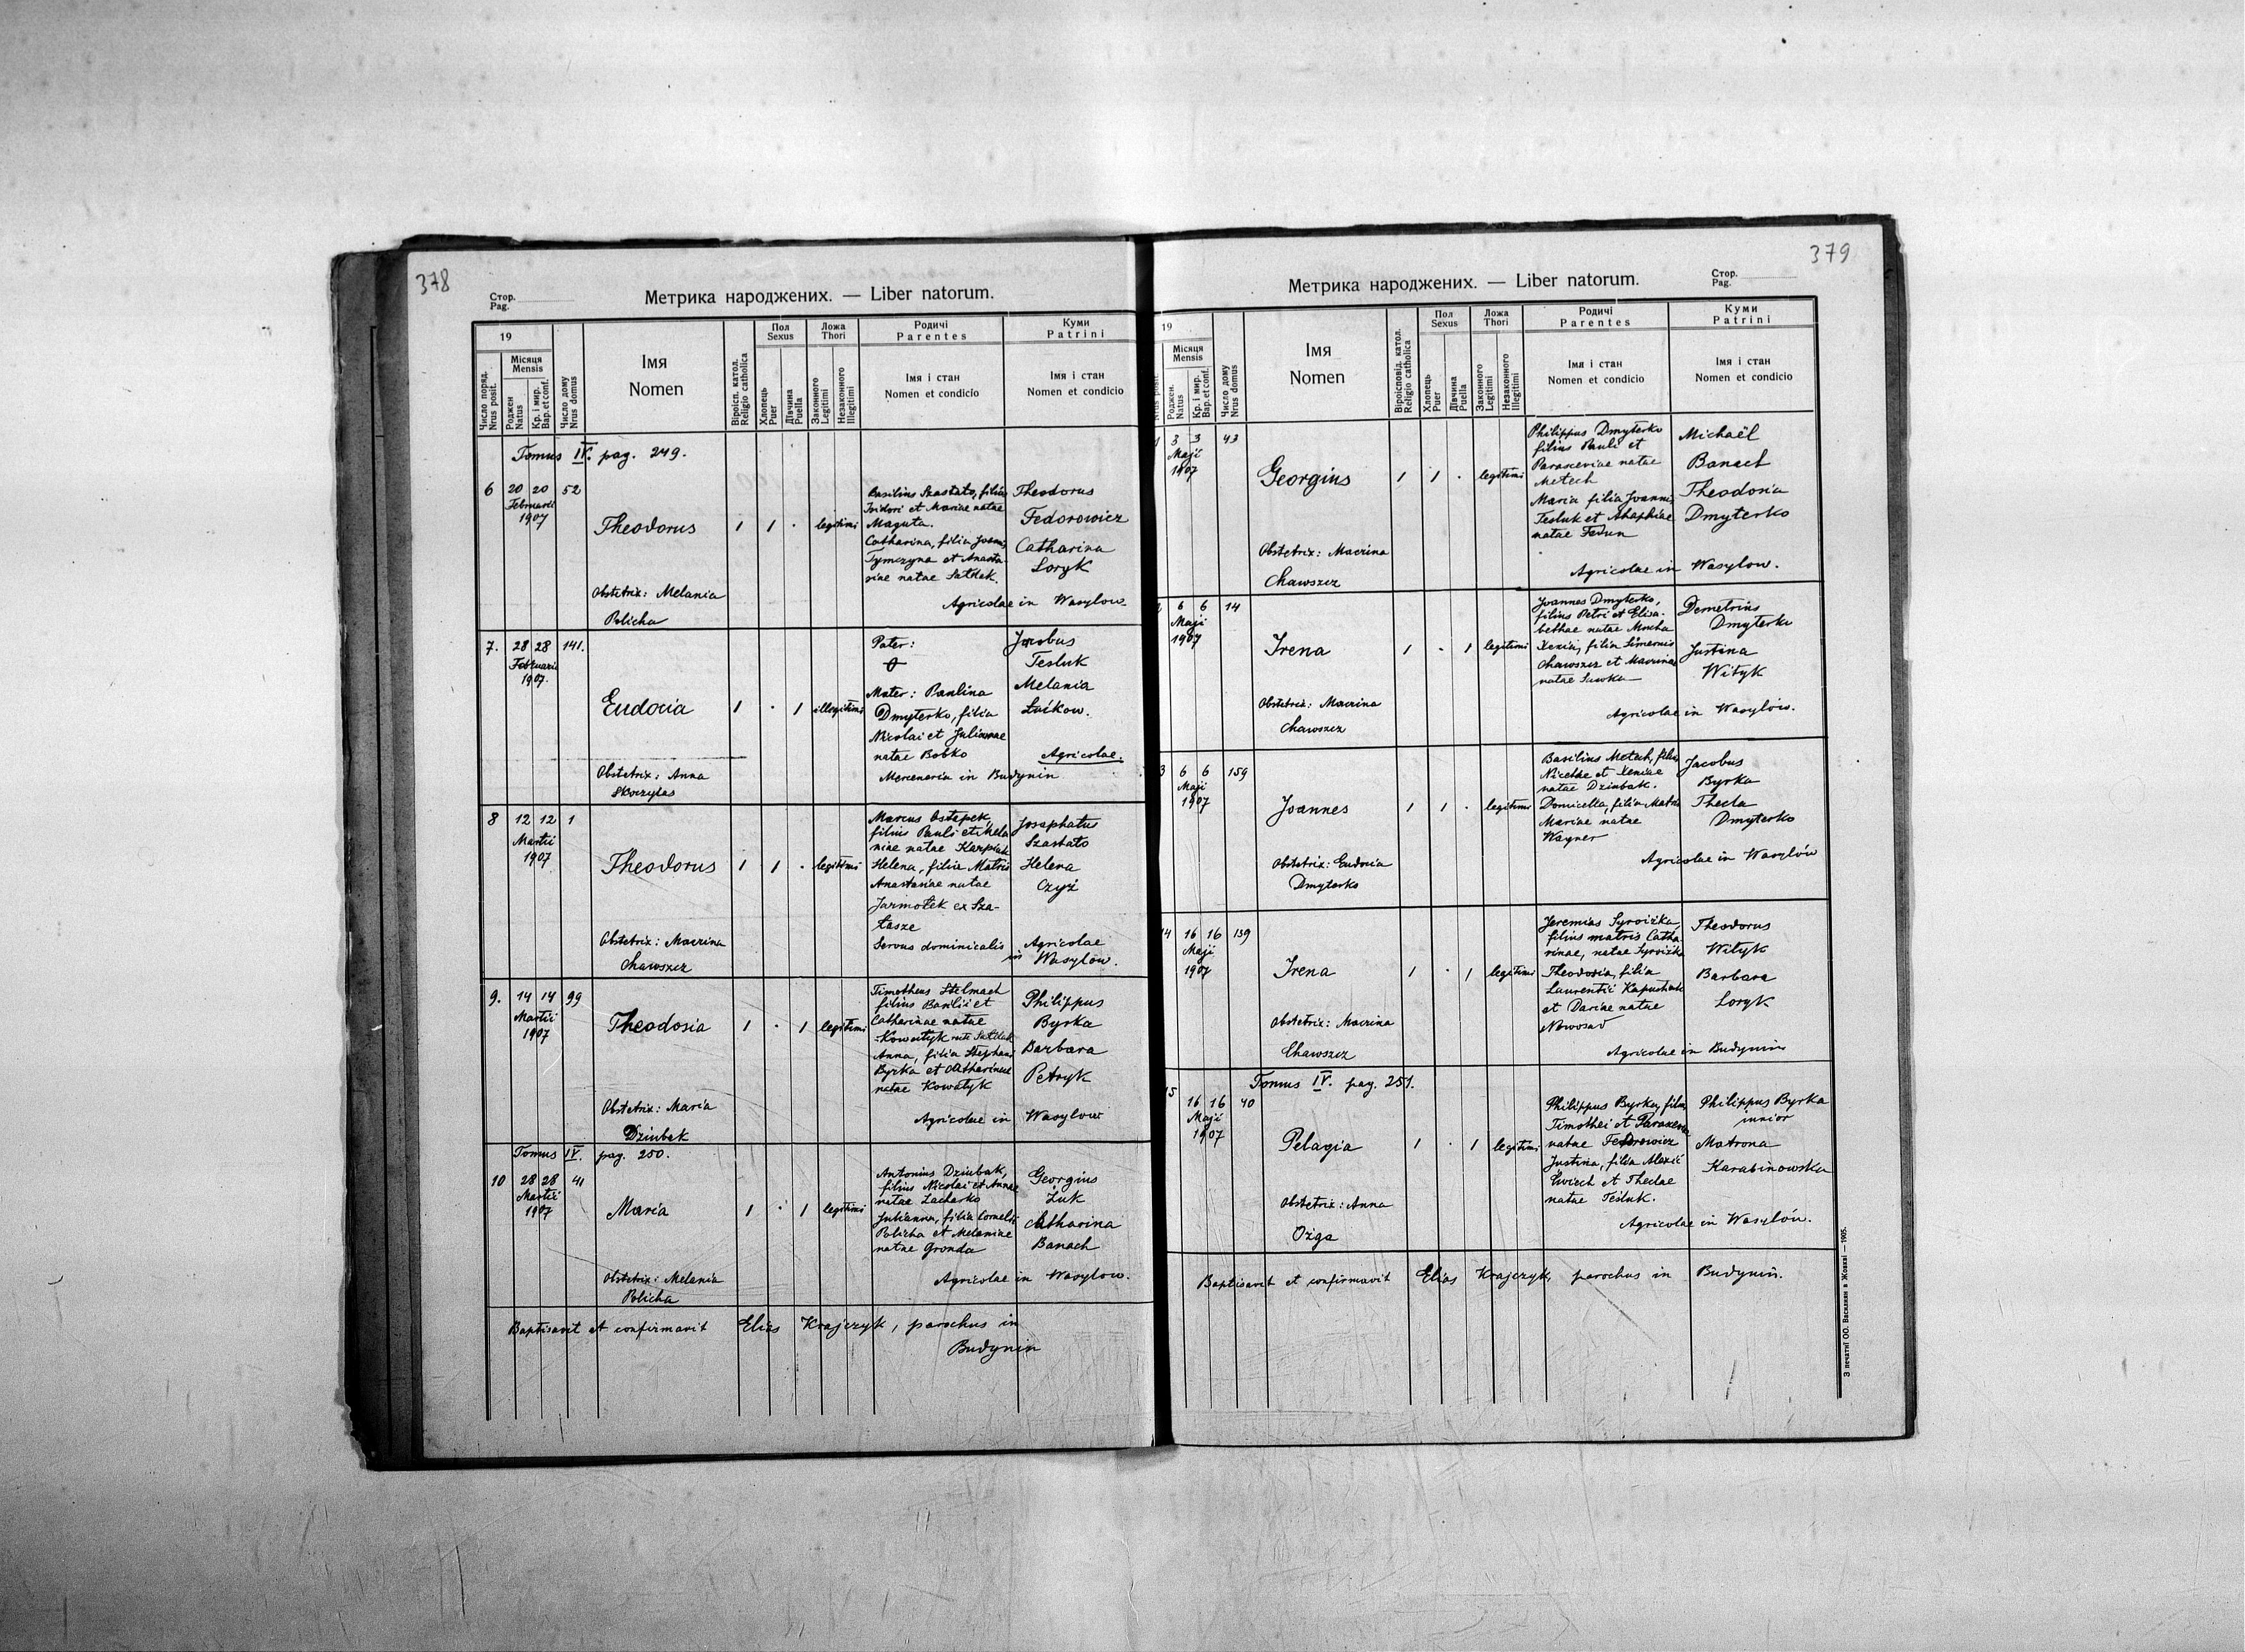 378
Стор.
Pag.
Метрика народжених. — Liber natorum.
19
Місяця
Mensis
Число поряд.
Nrus posit.
Роджен
Natus
Кр. і мир.
Bap. et conf.
Число дому
Nrus domus
Імя
Nomen
Віроісп. катол.
Religio catholica
Пол
Sexus
Хлопець
Puer
Дівчина
Puella
Ложа
Thori
Законного
Legitimi
Незаконного
Illegitimi
Родичі
Parentes
Імя і стан
Nomen et condicio
Куми
Patrini
Імя і стан
Nomen et condicio
Tomus IV. pag. 249.
6 20 20 52
Februarii
1907
Theodorus 1 1 · legitimi
Basilius Szastato, filius
Isidori et Mariae natae
Maguta.
Catharina, filia Joannis
Tymczyna et Anasta-
siae natae Satdak.
Theodorus
Fedorowicz
Catharina
Loryk
Obstetrix: Melania
Policha
Agricolae in Wasylow.
7. 28 28 141.
Februarii
1907.
Eudocia 1 · 1 illegitimi
Pater:
Mater: Paulina
Dmyterko, filia
Nicolai et Julianae
natae Bobko
Jacobus
Tesluk
Melania
Łuikow.
Agricolae.
Obstetrix: Anna
Skoczylas
Mercenaria in Budynin
8 12 12 1
Martii
1907
Theodorus 1 1 · legitimi
Marcus Ostapek,
filius Pauli et Mela
niae natae Karpiak
Helena, filia Matris
Anastasiae natae
Jarmołek ex Sza-
tasze
Servus dominicalis
Josaphatus
Szastato
Helena
Czyż
Agricolae
in Wasylow.
Obstetrix: Macrina
Chawszcz
9. 14 14 99
Martii
1907
Theodosia 1 · 1 legitimi
Timotheus Stelmach
filius Basilii et
Catharinae natae
Kowatyk recte Satdak
Anna, filia Stephani
Byrka et Catharinae
natae Kowatyk
Philippus
Byrka
Barbara
Petryk
Obstetrix: Maria
Dziubak
Agricolae in Wasylow
Tomus IV. pag. 250.
10 28 28 41
Martii
1907
Maria 1 · 1 legitimi
Antonius Dziubak,
filius Nicolai et Annae
natae Zacharko
Julianna, filia Cornelii
Policha et Melaniae
natae Gronda
Georgius
Żuk
Catharina
Banach
Obstetrix: Melania
Policha
Agricolae in Wasylow.
Baptisavit et confirmavit Elias Krajczyk, parochus in
Budynin
379
Метрика народжених. — Liber natorum.
Стор.
Pag.
19
Місяця
Mensis
Nrus posit.
Роджен.
Natus
Кр. і мир.
Bap. et conf.
Число дому
Nrus domus
Імя
Nomen
Віроісповід. катол.
Religio catholica
Пол
Sexus
Хлопець
Puer
Дівчина
Puella
Ложа
Thori
Законного
Legitimi
Незаконного
Illegitimi
Родичі
Parentes
Імя і стан
Nomen et condicio
Куми
Patrini
Імя і стан
Nomen et condicio
1 3 3 43
Maji
1907
Georgius 1 1 · legitimi
Philippus Dmyterko
filius Pauli et
Parasceviae natae
Metech
Maria filia Joannis
Tesluk et Ahaphiae
natae Fedun
Michaël
Banach
Theodosia
Dmyterko
Obstetrix: Macrina
Chawszcz
Agricolae in Wasylow.
6 6 14
Maji
1907
Irena 1 · 1 legitimi
Joannes Dmyterko,
filius Petri et Elisa-
bethae natae Mucha
Xenia, filia Simeonis
Chawszcz et Macrinae
natae Sawka
Demetrius
Dmyterko
Justina
Wityk
Obstetrix: Macrina
Chawszcz
Agricolae in Wasylów.
3 6 6 159
Maji
1907
Joannes 1 1 · legitimi
Basilius Metech, filius
Nicetae et Xeniae
natae Dziubak.
Domicella, filia Matris
Mariae natae
Wagner
Jacobus
Byrka
Thecla
Dmyterko
Obstetrix: Eudocia
Dmyterko
Agricolae in Wasylów
14 16 16 139
Maji
1907
Irena 1 · 1 legitimi
Jeremias Syroiżka,
filius matris Catha
rinae, natae Syroiżka
Theodosia, filia
Laurentii Kapustiak
et Dariae natae
Nowosad
Theodorus
Wityk
Barbara
Loryk
Obstetrix: Macrina
Chawszcz
Agricolae in Budynin
Tomus IV. pag. 251.
15 16 16 40
Maji
1907
Pelagia 1 · 1 legitimi
Philippus Byrka, filius
Timothei et Paraxeviae
natae Fedorowicz
Justina, filia Alexii
Ćwiech et Theclae
natae Tesluk.
Philippus Byrka
iunior
Matrona
Karabinowska
Obstetrix: Anna
Ożga
Agricolae in Wasylów.
Baptisavit et confirmavit Elias Krajczyk, parochus in Budynin.
З печатнї ОО. Василиян в Жовкві — 1905.